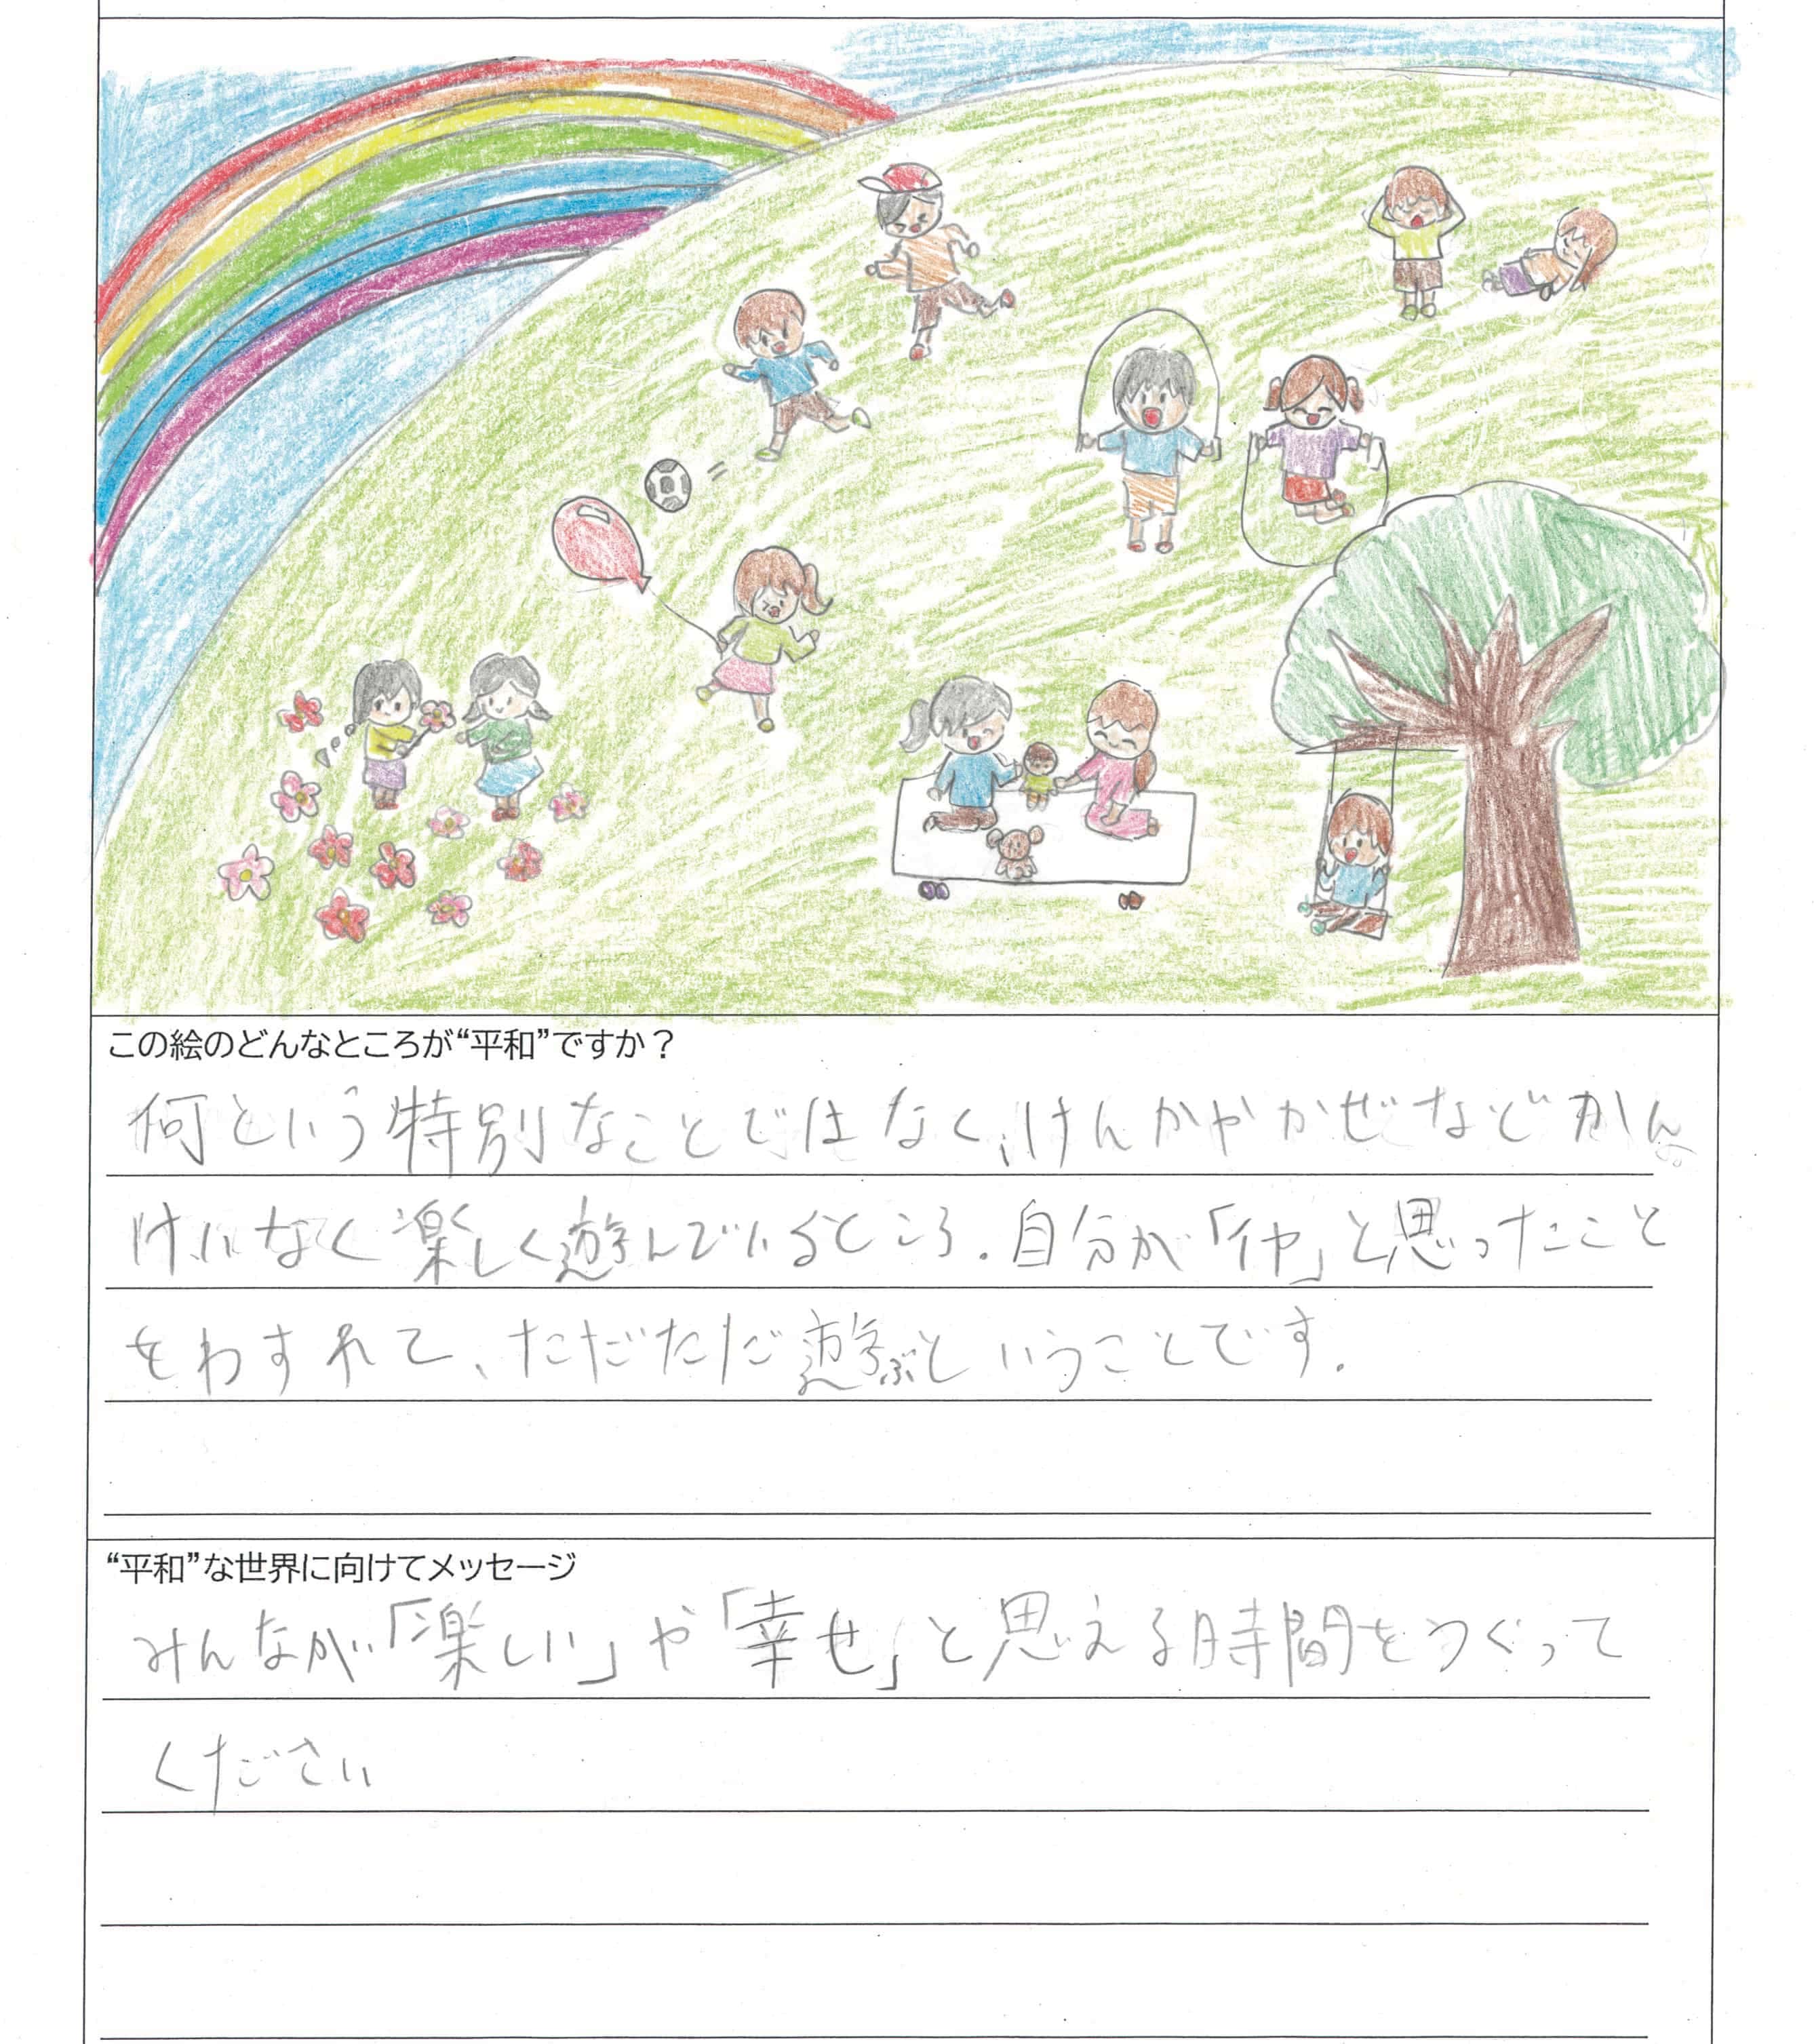 この絵のどんなところが“平和”ですか？
何という特別なことではなく、けんかやかぜなどかん
けいなく楽しく遊んでいるところ。自分が「イヤ」と思ったこと
をわすれて、ただただ遊ぶということです。
“平和”な世界に向けてメッセージ
みんなが「楽しい」や「幸せ」と思える時間をつくって
ください